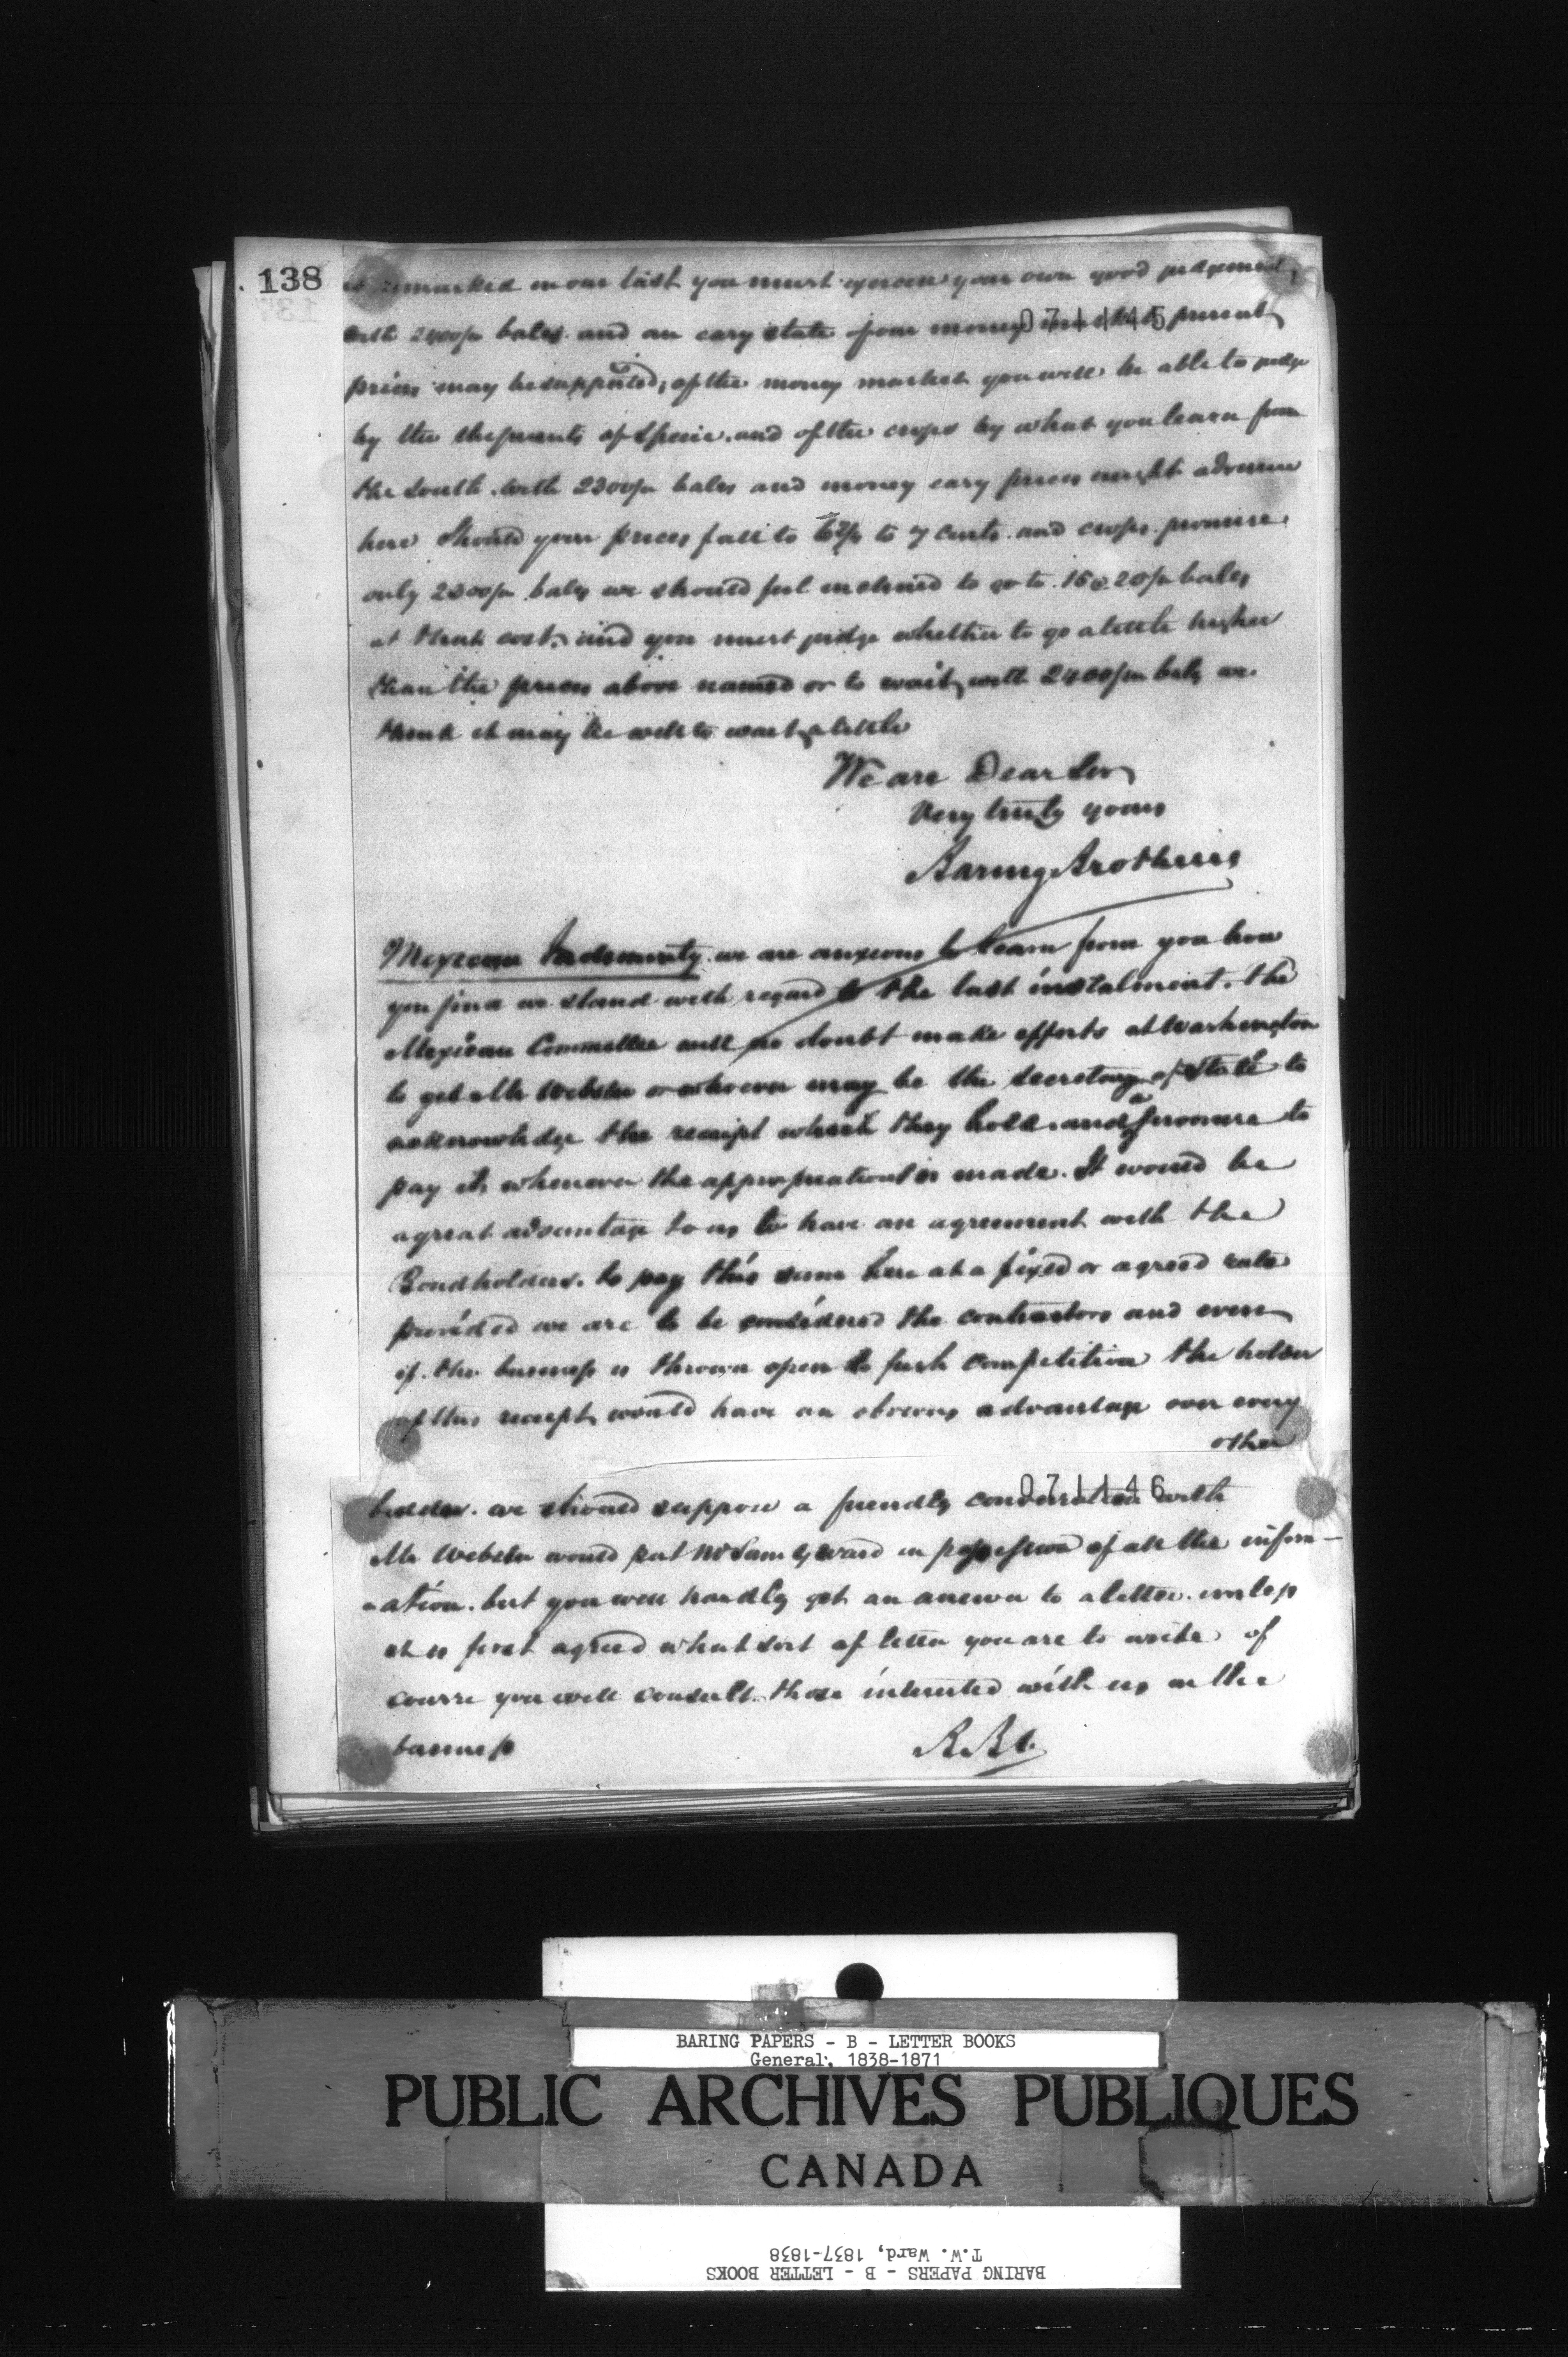 138
as remarked in our last you must exercise your own good judgement,
071145
with 2400/m bales and an easy state of our money market present
prices may be supported; of the money market you will be able to judge
by the shipments of specie, and of the crops by what you learn from
the South. with 2300/m bales and money easy prices might advance
here Should your prices fall to to 7 cents and crops promise
only 2300/m bales we should feel inclined to go to 15 @ 20/m bales
at that cost, and you must judge whether to go a little higher
than the prices above named or to wait, with 2400/m bales we
think it may be well to wait a little
We are Dear Sir
Very truly yours
Baring Brothers
Mexican Indemnity. we are anxious to learn from you how
you find we stand with regard to the last instalment. the
Mexican Committee will no doubt make efforts at Washington
to get Mr Webster or whoever may be the secretary of State to
acknowledge the receipt which they hold and a promise to
pay it, whenever the appropriation is made. It would be
a great advantage to us to have an agreement with the
Bondholders. to pay this sum here at a fixed or agreed rate
provided we are to be considered the contractors and even
if the business is thrown open to fresh competition the holder
of this receipt would have an obvious advantage over every
other
071146
bidder. we should suppose a friendly conversation with
Mr Webster would put Mr Sam G Ward in possession of all the inform-
-ation. but you will hardly get an answer to a letter unless
it is first agreed what sort of letter you are to write of
course you will consult those interested with us in the
business
BARING PAPERS - B - LETTER BOOKS
General, 1838-1871
PUBLIC ARCHIVES PUBLIQUES
CANADA
T.W. Ward, 1837-1838
BARING PAPERS - B - LETTER BOOKS